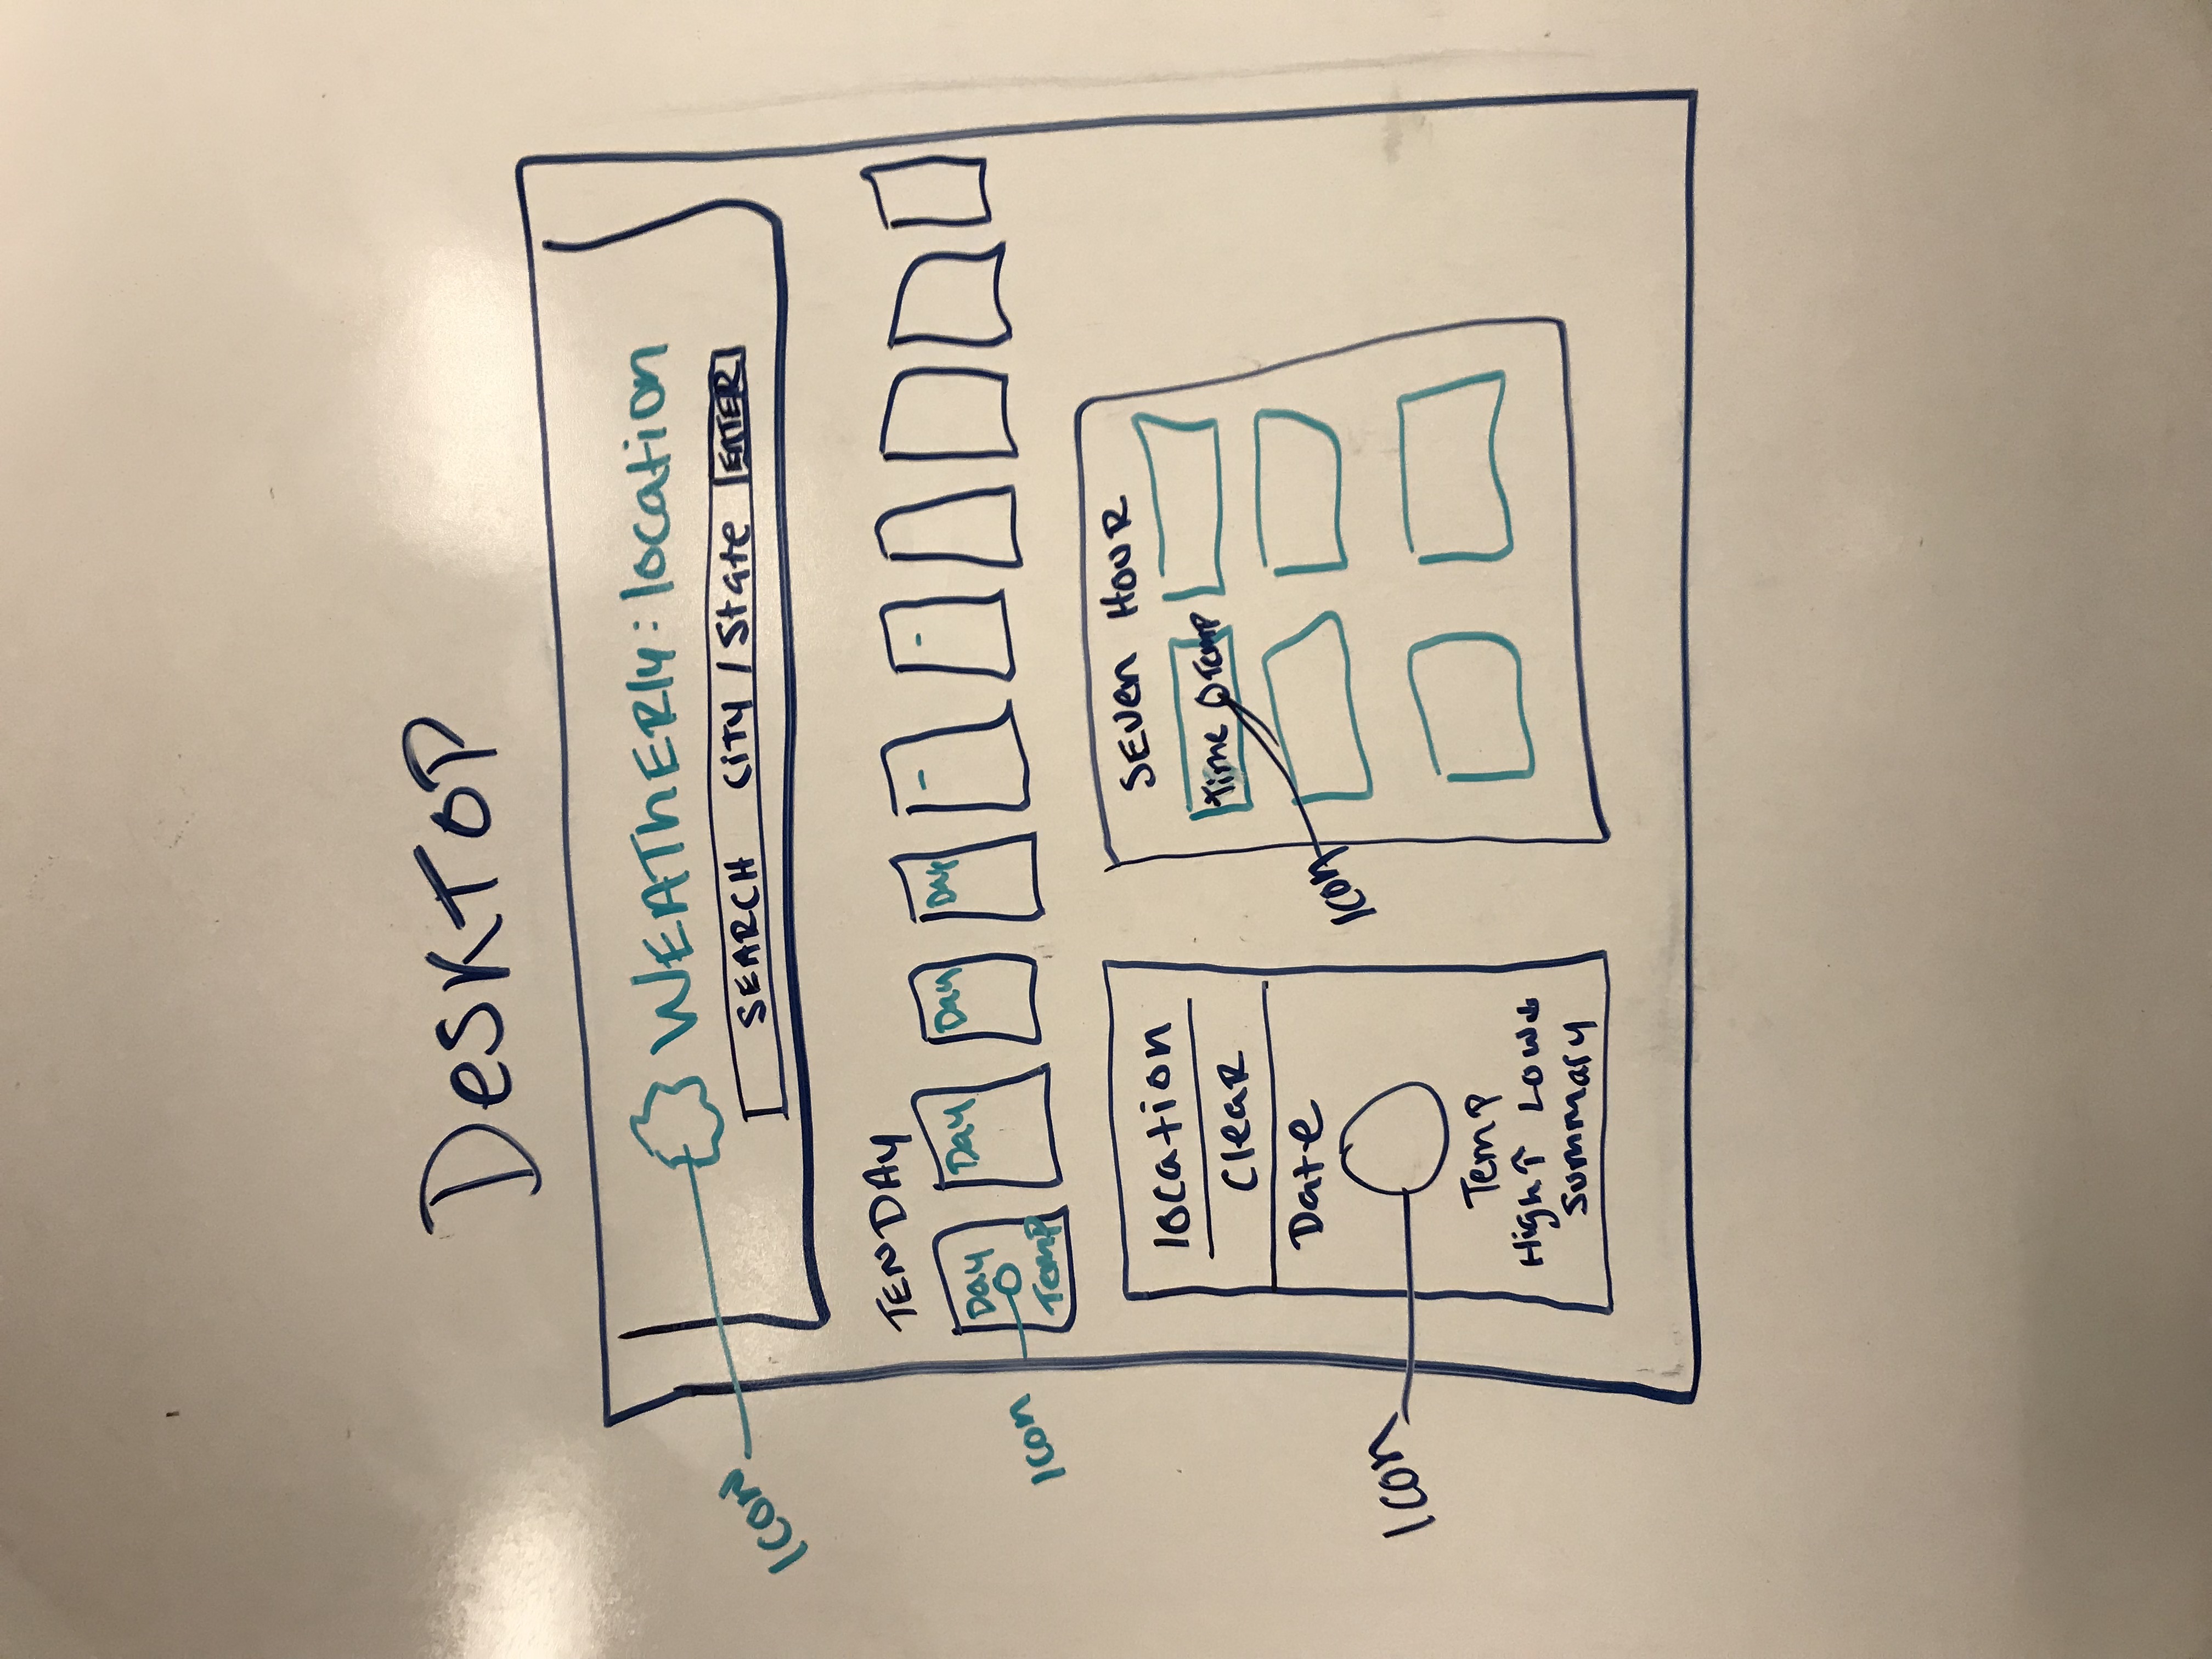 DeSKTOP
WEATHERly: location
Icon
SEARCH City / State ENTER
TEN DAY
Day Day Day Day - -
Icon
Temp
location
Clear
Date
Icon
Temp
High↑ Low↓
Summary
SEVen HOUR
Time Temp
Icon